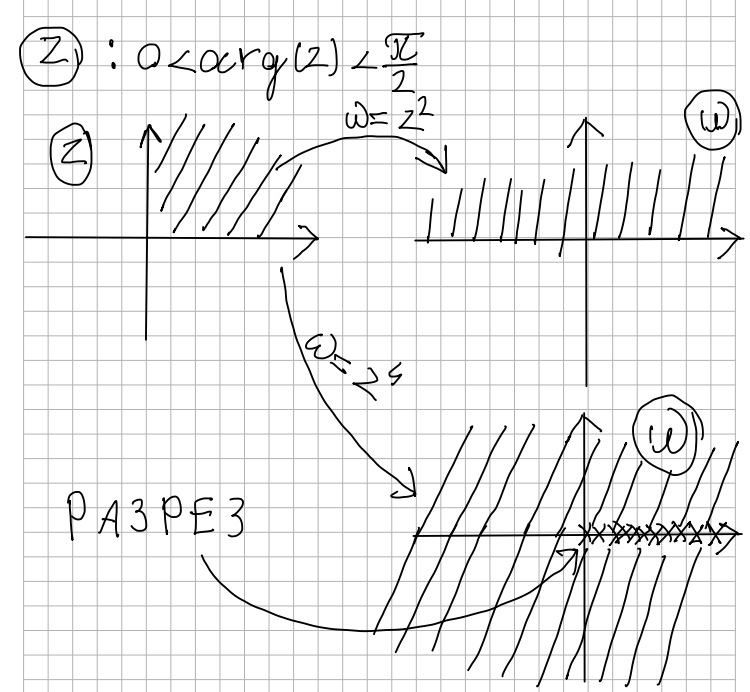 Z : 0<arg(z)<π/2
ω=z²
Z
ω
ω=z⁴
ω
РАЗРЕЗ